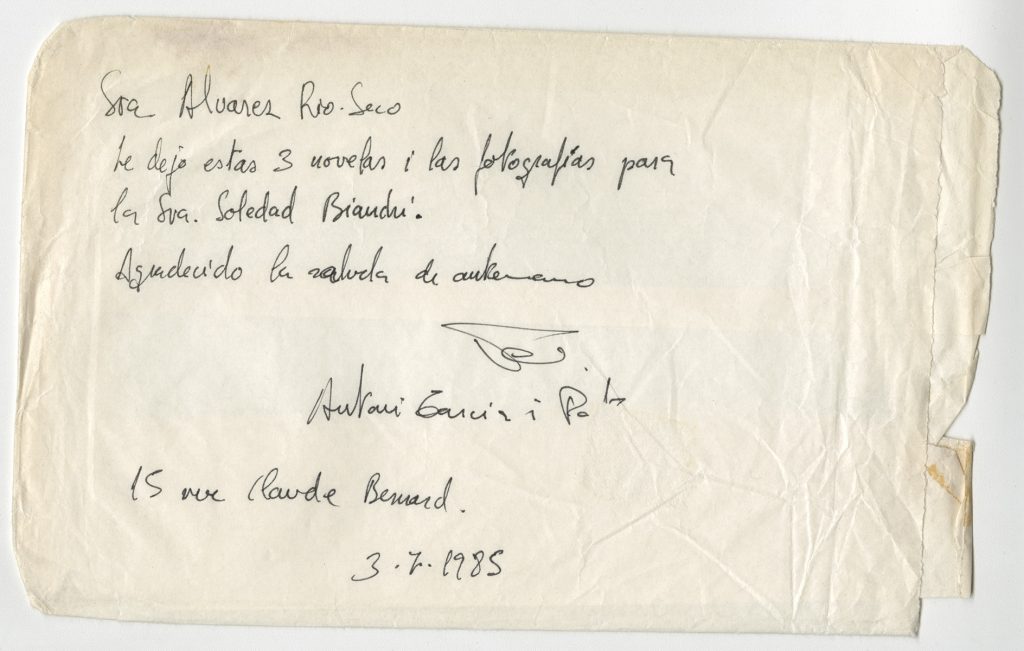 Sra Alvarez Rio-Seco
Le dejo estas 3 novelas i las fotografías para
la Sra. Soledad Bianchi.
Agradecido la saluda de antemano
Antoni Garcia i
15 rue Claude Bernard.
3.7.1985